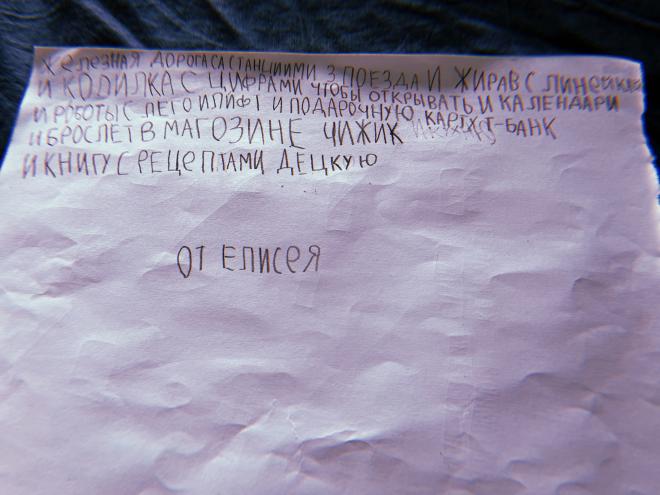 железная дорога са станциими 3 поезда и жирав с линейкай
и кодилка с цифрами чтобы открывать и календари
и роботы с лего и лифт и подарочную карту т-банк
и брослет в магозине чижик
и книгу с рецептами децкую
от елисея